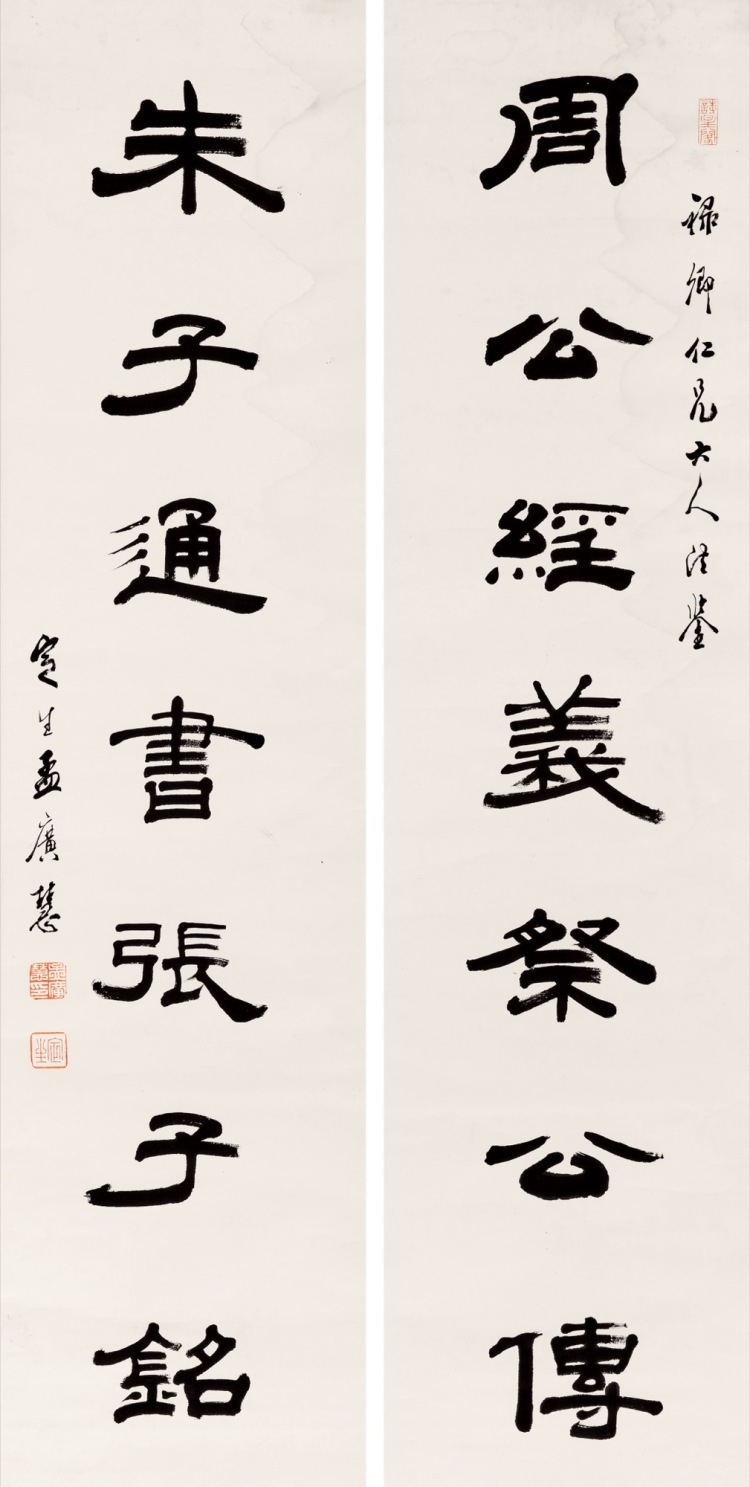 祿卿仁兄大人法鑒
周公經義祭公傳
朱子通書張子銘
定生孟廣慧
孟廣慧印
定生